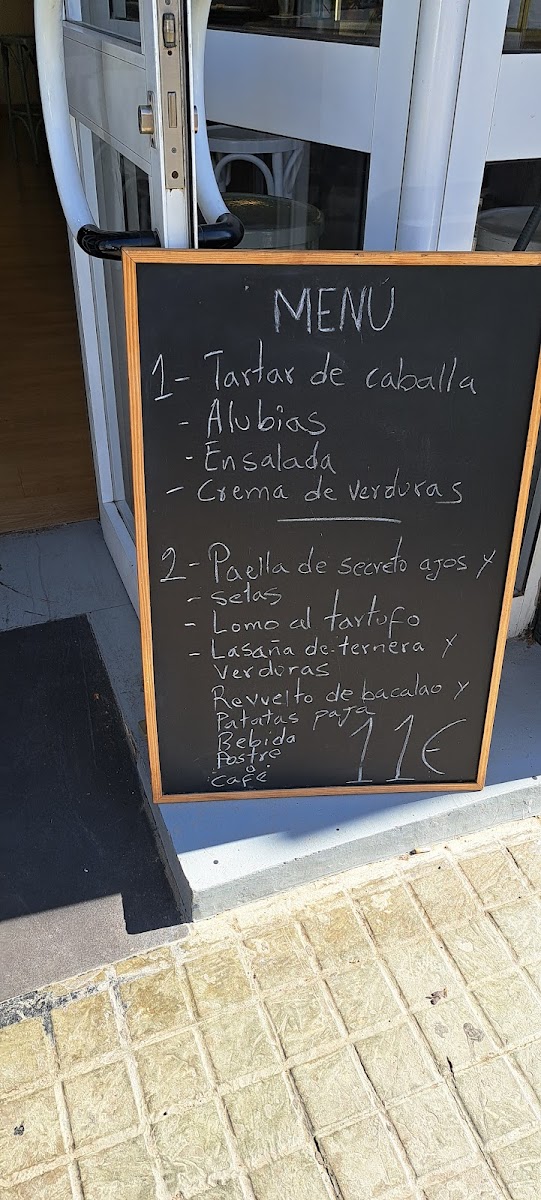 MENÚ
1- Tartar de caballa
- Alubias
- Ensalada
- Crema de verduras
2- Paella de secreto ajos y
- setas
- Lomo al tartufo
- Lasaña de ternera y
verduras
Revuelto de bacalao y
Patatas paja
Bebida
Postre
o
café
11€